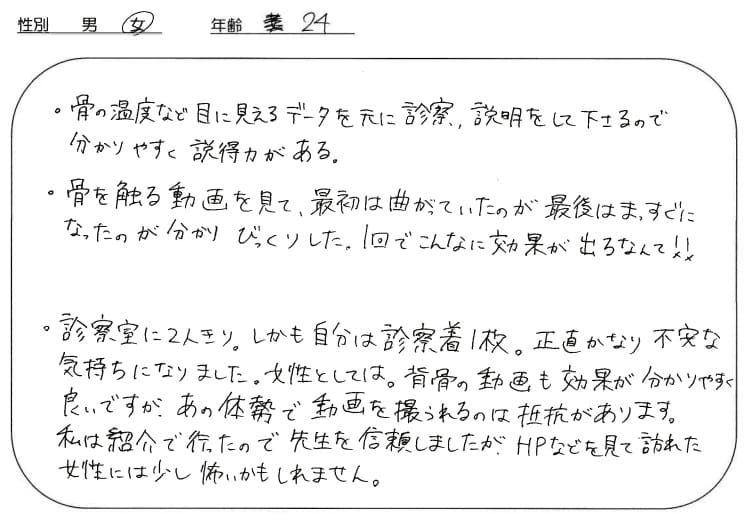 性別 男 女 年齢 24
・骨の温度など目に見えるデータを元に診察,説明をして下さるので
分かりやすく説得力がある。
・骨を触る動画を見て、最初は曲がっていたのが最後はまっすぐに
なったのが分かり びっくりした。1回でこんなに効果が出るなんて!!
・診察室に2人きり。しかも自分は診察着1枚。正直かなり不安な
気持ちになりました。女性としては。背骨の動画も効果が分かりやすく
良いですが、あの体勢で動画を撮られるのは抵抗があります。
私は紹介で行ったので先生を信頼しましたが、HPなどを見て訪れた
女性には少し怖いかもしれません。